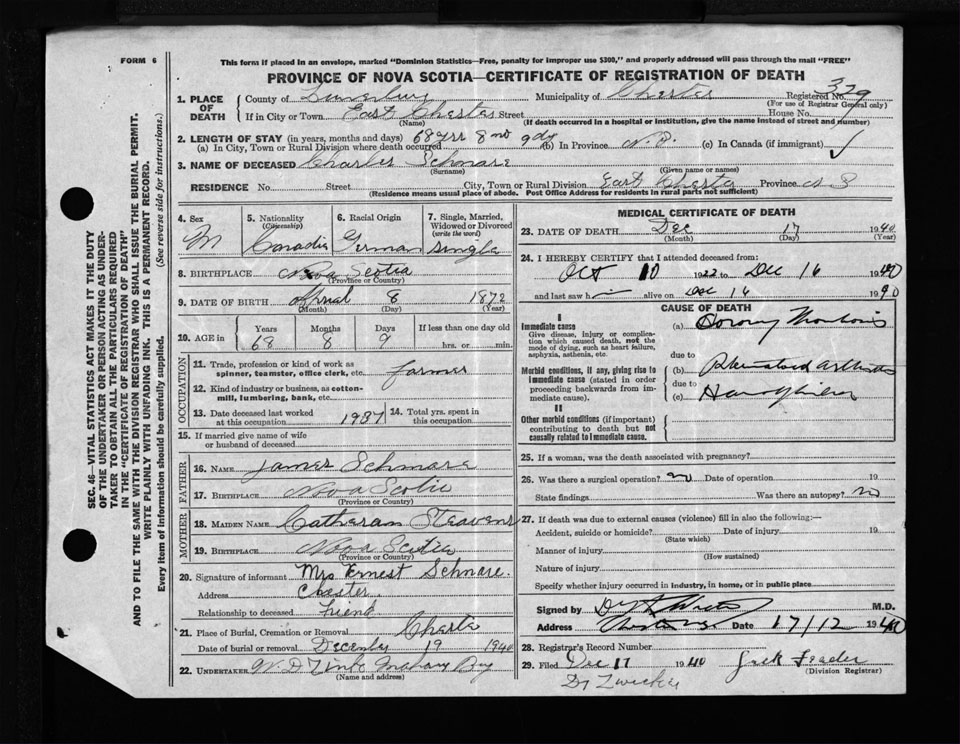 FORM 6
This form if placed in an envelope, marked "Dominion Statistics—Free, penalty for improper use $300," and properly addressed will pass through the mail "FREE"
PROVINCE OF NOVA SCOTIA—CERTIFICATE OF REGISTRATION OF DEATH
1. PLACE OF DEATH
County of Lunenburg Municipality of Chester Registered No. 329
(For use of Registrar General only)
If in City or Town East Chester Street House No.
(Name) (If death occurred in a hospital or institution, give the name instead of street and number)
2. LENGTH OF STAY (in years, months and days) 68 yrr 8 mo 9 dy
(a) In City, Town or Rural Division where death occurred (b) In Province N.S. (c) In Canada (if immigrant)
3. NAME OF DECEASED Charles Schnare
(Surname) (Given name or names)
RESIDENCE No. Street City, Town or Rural Division East Chester Province N S
(Residence means usual place of abode. Post Office Address for residents in rural parts not sufficient)
4. Sex M
5. Nationality (Citizenship) Canadia
6. Racial Origin German
7. Single, Married, Widowed or Divorced (write the word) single
8. BIRTHPLACE Nova Scotia
(Province or Country)
9. DATE OF BIRTH April 8 1872
(Month) (Day) (Year)
10. AGE in Years 68 Months 8 Days 9 If less than one day old hrs. or min.
OCCUPATION
11. Trade, profession or kind of work as spinner, teamster, office clerk, etc. farmer
12. Kind of industry or business, as cotton-mill, lumbering, bank, etc.
13. Date deceased last worked at this occupation 1937
14. Total yrs. spent in this occupation
15. If married give name of wife or husband of deceased
FATHER
16. NAME James Schnare
17. BIRTHPLACE Nova Scotia
(Province or Country)
MOTHER
18. MAIDEN NAME Catheran Steavens
19. BIRTHPLACE Nova Scotia
(Province or Country)
20. Signature of informant Mrs Ernest Schnare.
Address Chester
Relationship to deceased Friend
21. Place of Burial, Cremation or Removal Chester
Date of burial or removal December 19 1940
22. UNDERTAKER W D Zink Mahone Bay
(Name and address)
MEDICAL CERTIFICATE OF DEATH
23. DATE OF DEATH Dec 17 1940
(Month) (Day) (Year)
24. I HEREBY CERTIFY that I attended deceased from:
Oct 10 1922 to Dec 16 1940
and last saw h alive on Dec 16 1940
CAUSE OF DEATH
I
Immediate cause
Give disease, injury or complication which caused death, not the mode of dying, such as heart failure, asphyxia, asthenia, etc.
(a) Coronary
due to
Morbid conditions, if any, giving rise to immediate cause (stated in order proceeding backwards from immediate cause).
(b) Rheumatoid Arthritis
due to
(c)
II
Other morbid conditions (if important) contributing to death but not causally related to immediate cause.
25. If a woman, was the death associated with pregnancy?
26. Was there a surgical operation? no Date of operation 19
State findings Was there an autopsy? no
27. If death was due to external causes (violence) fill in also the following:—
Accident, suicide or homicide? Date of injury 19
(State which)
Manner of injury
(How sustained)
Nature of injury
Specify whether injury occurred in industry, in home, or in public place
Signed by M.D.
Address Date 17/12 1940
28. Registrar's Record Number
29. Filed Dec 17 1940 Jack Leader
(Division Registrar)
Dr Zwicker
SEC. 46—VITAL STATISTICS ACT MAKES IT THE DUTY
OF THE UNDERTAKER OR PERSON ACTING AS UNDER-
TAKER TO OBTAIN ALL THE PARTICULARS REQUIRED
IN THE "CERTIFICATE OF REGISTRATION OF DEATH"
AND TO FILE THE SAME WITH THE DIVISION REGISTRAR WHO SHALL ISSUE THE BURIAL PERMIT.
WRITE PLAINLY WITH UNFADING INK. THIS IS A PERMANENT RECORD.
Every item of Information should be carefully supplied. (See reverse side for instructions.)